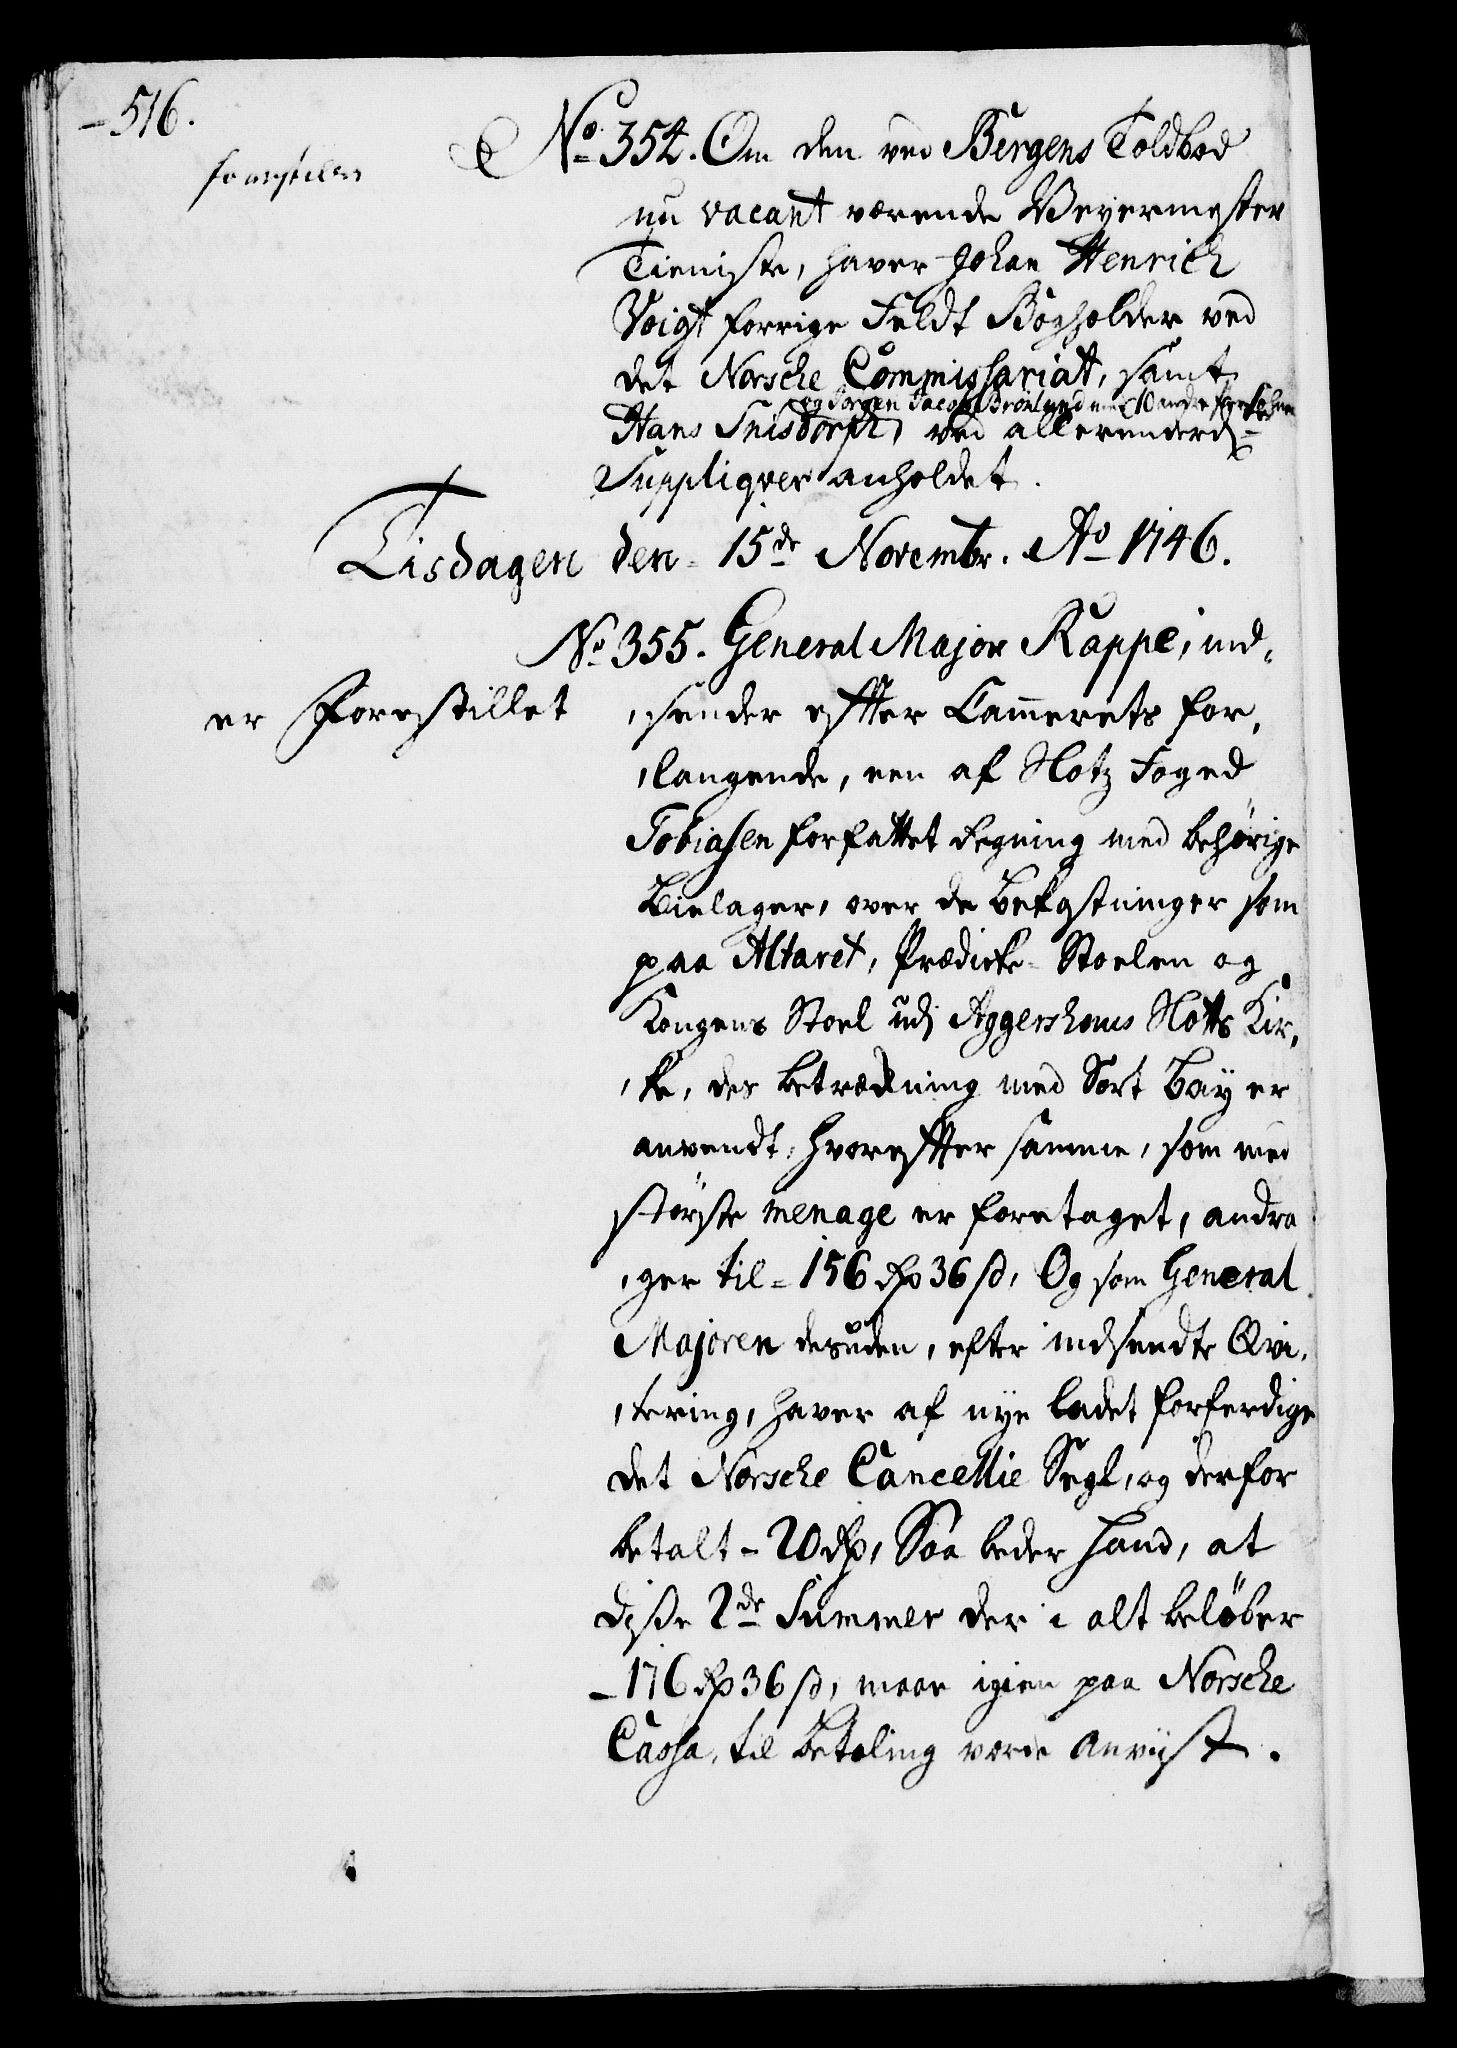 -516.
forestilles
No 354. Om den ved Bergens Toldbod
nu vacant værende Veyermester
Tieniste, haver Johan Henrich
Voigt forrige Feldt Bogholder ved
det Norsche Commissariat, samt
og Jørgen Jacob Brønlund med 10 andre
Hans Snisdorph, ved allerunderd:
Suppliqver anholdet.
Tisdagen den 15de Novembr. Ao 1746.
No 355. General Major Rappe, ind-
er Forestillet
sender efter Cammerets for,
langende, een af Slotz Foged
Tobiasen forfattet Regning med behørige
Bielager, over de bekostninger som
paa Altaret, Prædicke-Stoelen og
Kongens Stoel udj Aggershuus Slotts Kir,
ke, des betrækning med Sort Bay er
anvendt, hvorefter samme, som med
største menage er foretaget, andra
ger til - 156 rd 36 s, Og som General
Majoren desuden, efter indsendte Qvi,
tering, haver af nye ladet forferdige
det Norsche Cancellie Segl, og derfor
betalt - 20 rd, Saa beder hand, at
disse 2de Summer der i alt beløber
- 176 rd 36 s, maae igien paa Norsche
Cassa, til betaling vorde anviist.